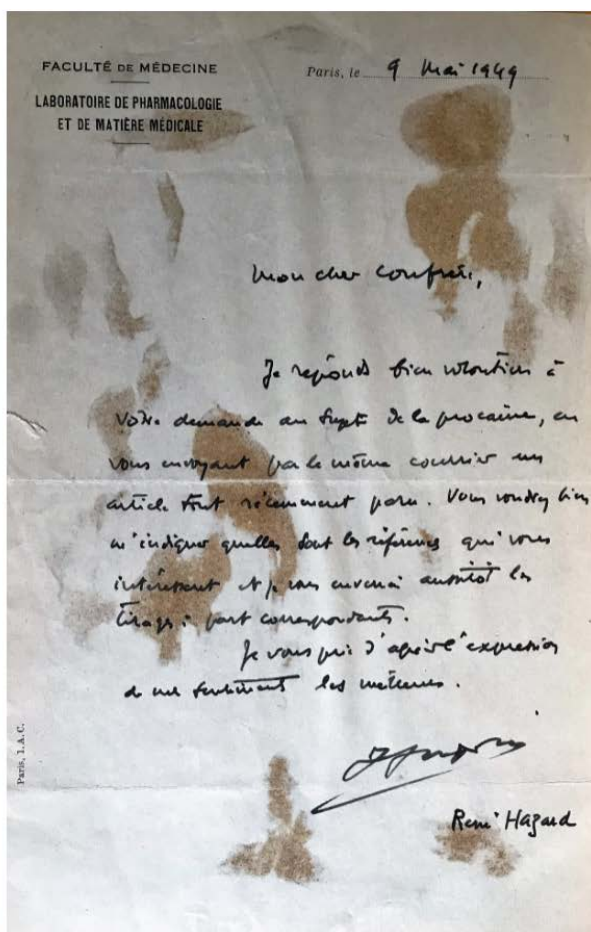 FACULTÉ DE MÉDECINE
LABORATOIRE DE PHARMACOLOGIE
ET DE MATIÈRE MÉDICALE
Paris, le 9 Mai 1949
Mon cher Confrère,
Je réponds bien volontiers à
votre demande au sujet de la procaïne, en
vous envoyant par le même courrier un
article tout récemment paru. Vous voudrez bien
m'indiquer quelles sont les références qui vous
intéressent et je vous enverrai aussitôt les
tirages à part correspondants.
Je vous prie d'agréer l'expression
de mes sentiments les meilleurs.
René Hazard
Paris, I. A. C.